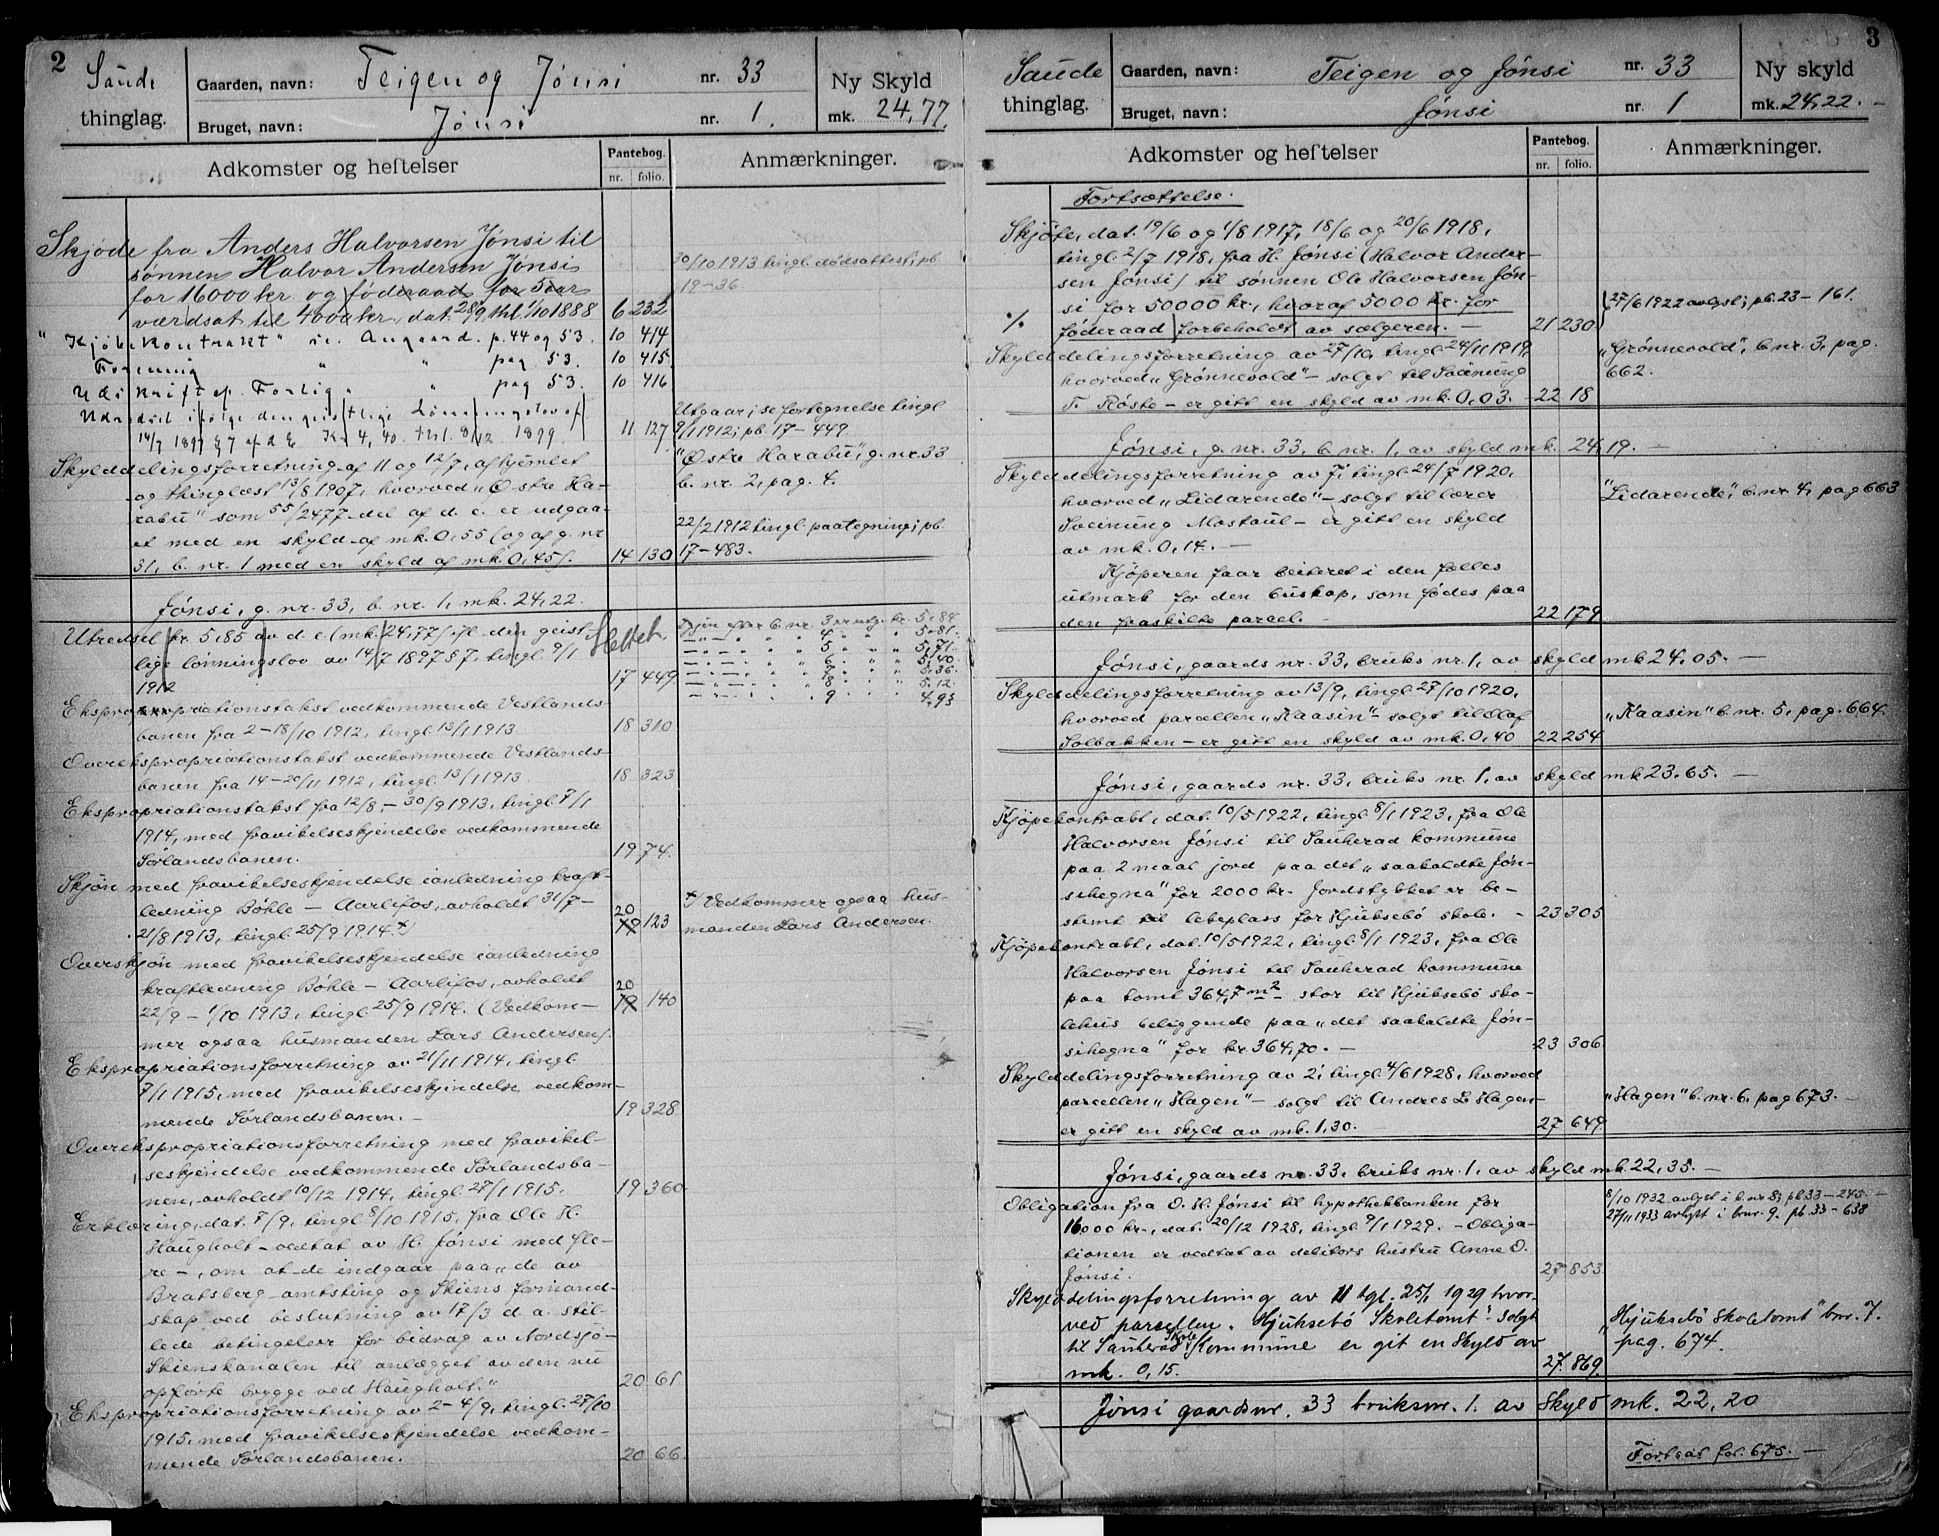 2
Saude
thinglag.
Gaarden, navn: Teigen og Jønsi nr. 33
Bruget, navn: Jønsi nr. 1.
Ny Skyld
mk. 24,77.
Adkomster og heftelser
Pantebog.
nr. folio.
Anmærkninger.
Skjøde fra Anders Halvorsen Jønsi til
sønnen Halvor Andersen Jønsi
for 16000 kr. og føderaad for 5 aar
værdsat til 4000 kr. dat. 28/9, thl. 1/10 1888 6 232
30/10 1913 tingl. dødsattest; pb.
19-36.
"Kjøbekontrakt" Angaard. p. 44 og 53. 10 414
Forening " " pag 53. 10 415
Udskrift af Forlig " " pag 53. 10 416
Udredsel ifølge den geistlige Lønningslov af
14/7 1897 § 7 af d. E Kr. 4,40. thl. 8/12 1899. 11 127
Utgaar; se fortegnelse tingl
9/1 1912; pb. 17-449.
Skylddelingsforretning af 11 og 12/7, afhjemlet
og thinglæst 13/8 1907, hvorved "Østre Ha-
rabu" som 55/2477 del af d. e. er udgaa-
et med en skyld af mk. 0,55 (og af g. nr
31, b. nr. 1 med en skyld af mk. 0,45). 14 130
"Østre Harabu", g. nr. 33
b. nr. 2, pag. 4.
22/2 1912 tingl. paategning; pb.
17-483.
Jønsi, g. nr. 33, b. nr. 1, mk. 24,22.
Utredsel kr. 5,85 av d. e. (mk. 24,77) ifl. den geist-
lige lønningslov av 14/7 1897 § 7, tingl. 9/1
1912 17 449
Slettet.
3 er utg. kr. 5.84.
4 " " " 5.81.
5 " " " 5,71.
6 " " " 5,40.
7 " " " 5.36.
8 " " " 5.12.
9 " " " 4,93
Ekspropriationstakst vedkommende Vestlands-
banen fra 2-18/10 1912, tingl. 13/1 1913. 18 310
Overekspropriationstakst vedkommende Vestlands-
banen fra 14-20/11 1912, tingl. 13/1 1913. 18 323
Ekspropriationstakst fra 12/8-30/9 1913, tingl. 7/1
1914, med fravikelseskjendelse vedkommende
Sørlandsbanen. 19 74.
Skjøn med fravikelseskjendelse i anledning kraft-
ledning Bøhle - Aarlifos, avholdt 31/7-
21/8 1913, tingl. 25/9 1914. x) 20 19 123
x) Vedkommer ogsaa hus-
manden Lars Andersen.
Overskjøn med fravikelseskjendelse i anledning
kraftledning Bøhle - Aarlifos, avholdt
22/9 - 1/10 1913, tingl. 25/9 1914. (Vedkom-
mer ogsaa husmanden Lars Andersen). 20 19 140
Ekspropriationsforretning av 21/11 1914, tingl.
7/1 1915, med fravikelseskjendelse vedkom-
mende Sørlandsbanen. - 19 328
Overekspropriationsforretning med fravikel-
seskjendelse vedkommende Sørlandsba-
nen, avholdt 10/12 1914, tingl. 27/1 1915. 19 360
Erklæring, dat. 7/9, tingl. 8/10 1915, fra Ole H.
Haugholt - vedtat av H. Jønsi med fle-
re -, om at de indgaar paa "de av
Bratsberg amtsting og Skiens formand-
skap ved beslutning av 17/3 d. a. stil-
lede betingelser for bidrag av Nordsjø-
Skienskanalen til anlægget av den nu
opførte brygge ved Haugholt." 20 61
Ekspropriationsforretning av 2-4/9, tingl. 27/10
1915, med fravikelseskjendelse vedkom-
mende Sørlandsbanen. 20 66
3
Saude
thinglag.
Gaarden, navn: Teigen og Jønsi nr. 33
Bruget, navn: Jønsi nr. 1
Ny skyld
mk. 24,22. -
Adkomster og heftelser
Pantebog.
nr. folio.
Anmærkninger.
Fortsættelse.
Skjøte, dat. 19/6 og 1/8 1917, 18/6 og 20/6 1918,
tingl. 2/7 1918, fra H. Jønsi (Halvor Ander-
sen Jønsi) til sønnen Ole Halvorsen Jøn-
si for 50000 kr., hvoraf 5000 kr. for
% føderaad forbeholdt av sælgeren. - 21 230
27/6 1922 avlyst; pb. 23-161.
Skylddelingsforretning av 27/10, tingl. 24/11 1919,
hvorved "Grønnevold" - solgt til Sveinung
T. Røste - er gitt en skyld av mk. 0,03. - 22 18
"Grønnevold", b. nr. 3, pag.
662.
Jønsi, g. nr. 33, b. nr. 1, av skyld mk. 24,19. -
Skylddelingsforretning av 7, tingl. 24/7 1920,
hvorved "Lidarende" - solgt til lærer
Sveinung Mostaul - er gitt en skyld
av mk. 0,14. -
"Lidarende", b. nr. 4, pag 663
Kjøperen faar beiteret i den fælles
utmark for den buskap, som fødes paa
den fraskilte parcel. - 22 179
Jønsi, gaards nr. 33, bruks nr. 1, av skyld mk 24,05. -
Skylddelingsforretning av 13/9, tingl. 27/10 1920,
hvorved parcellen "Kaasin" - solgt til Olaf
Solbakken - er gitt en skyld av mk. 0,40 22 254
"Kaasin" b. nr. 5, pag. 664.
Jønsi, gaards nr. 33, bruks nr. 1, av skyld mk 23.65. -
Kjøpekontrakt, dat. 10/5 1922, tingl. 8/1 1923, fra Ole
Halvorsen Jønsi til Sauherad kommune
paa 2 maal jord paa det "saakaldte Jøn-
sihegna" for 2000 kr. Jordstykket er be-
stemt til lekeplass for Hjuksebø skole. - 23 305
Kjøpekontrakt, dat. 10/5 1922, tingl. 8/1 1923, fra Ole
Halvorsen Jønsi til Sauherad kommune
paa tomt 364,7 m² stor til Hjuksebø sko-
lehus beliggende paa "det saakaldte Jøn-
sihegna" for kr. 364,70. - 23 306
Skylddelingsforretning av 2, tingl. 4/6 1928, hvorved
parcellen "Hagen" - solgt til Andres L. Hagen -
er gitt en skyld av mk. 1,30. 27 649
"Hagen" b. nr. 6, pag 673. -
Jønsi, gaards nr. 33, bruks nr. 1, av skyld mk. 22,35. -
Obligation fra O. H. Jønsi til hypothekbanken for
16000 kr., dat. 20/12 1928, tingl. 9/1 1929. - Obliga-
tionen er vedtat av debitors hustru Anne O.
Jønsi. 27 853
8/10 1932 avlyst i b. nr 8; pb 33-245. -
27/11 1933 avlyst i bnr. 9. pb. 33-638
Skylddelingsforretning av 11 tgl. 25/1 1929 hvor-
ved parsellen "Hjuksebö Skoletomt" solgt
til Sauherad Skole Kommune er git en Skyld av
mk. 0,15. 27 869
"Hjuksebö Skoletomt" bnr. 7.
pag. 674.
Jønsi gaardsnr. 33 bruksnr. 1. av Skyld mk. 22,20
Fortsat fol. 675. -